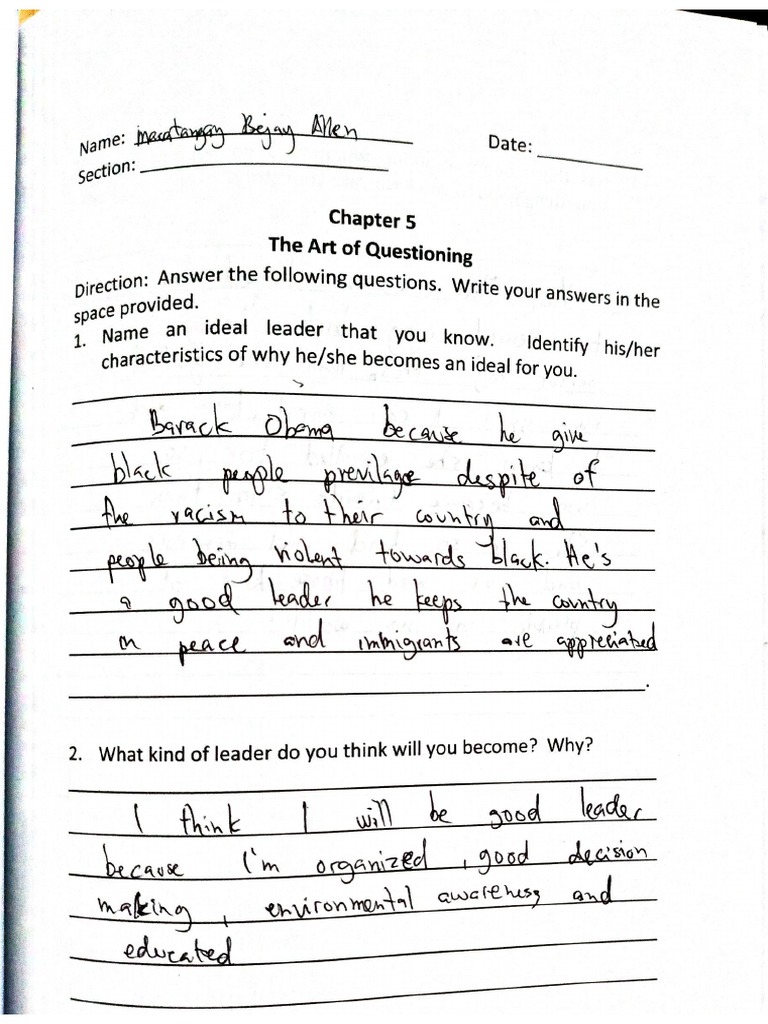 Name: Macatangay Bejay Allen Date:
Section:
Chapter 5
The Art of Questioning
Direction: Answer the following questions. Write your answers in the
space provided.
1. Name an ideal leader that you know. Identify his/her
characteristics of why he/she becomes an ideal for you.
Barack Obama because he give
black people previlage despite of
the racism to their country and
people being violent towards black. He's
a good leader he keeps the country
in peace and immigrants are appreciated
.
2. What kind of leader do you think will you become? Why?
I think I will be good leader
because I'm organized, good decision
making, environmental awareness and
educated